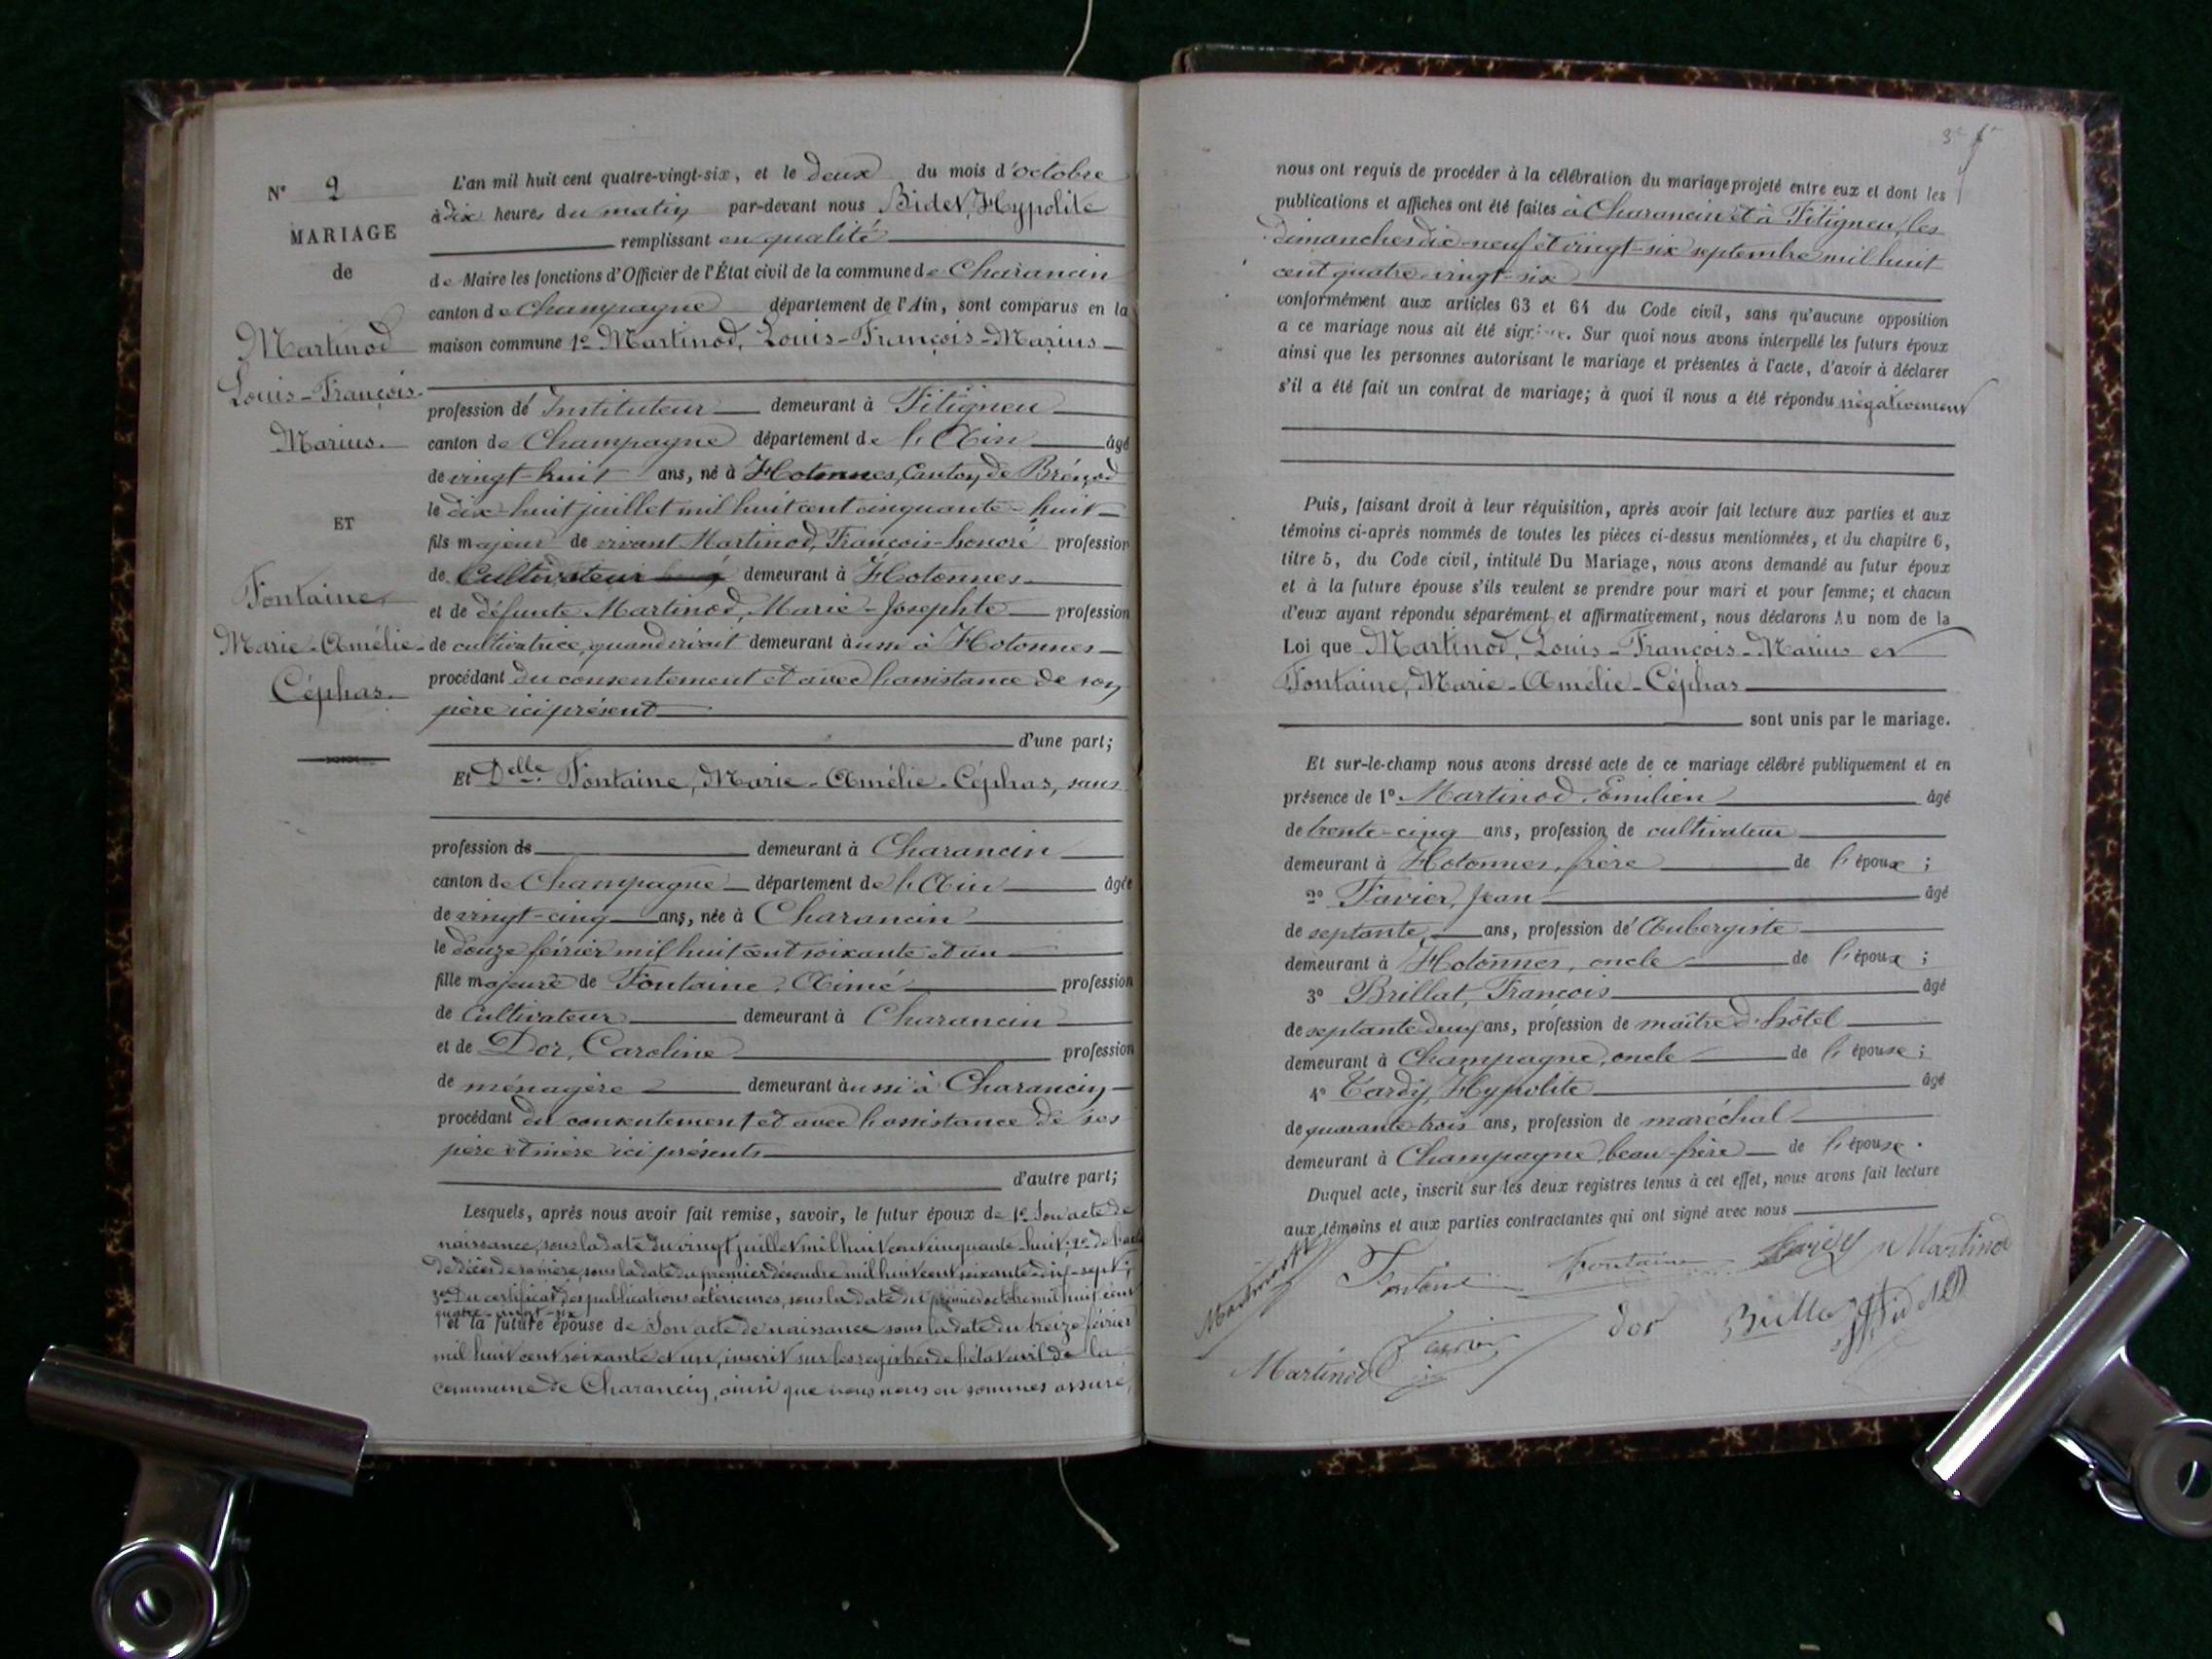 N° 2
MARIAGE
de
Martinod
Louis-François-
Marius.
ET
Fontaine
Marie-Amélie-
Céphas.
L'an mil huit cent quatre-vingt-six, et le deux du mois d'octobre
à dix heures du matin par-devant nous Bidet, Hypolite
remplissant en qualité
de Maire les fonctions d'Officier de l'État civil de la commune de Charancin
canton de Champagne département de l'Ain, sont comparus en la
maison commune 1° Martinod, Louis-François-Marius
profession d'Instituteur demeurant à Fitigneu
canton de Champagne département de l'Ain âgé
de vingt-huit ans, né à Hotonnes, Canton de Brénod
le dix-huit juillet mil huit cent cinquante-huit
fils majeur de vivant Martinod, François-honoré profession
de Cultivateur demeurant à Hotonnes
et de défunte Martinod, Marie-Josephte profession
de cultivatrice, quand vivait demeurant aussi à Hotonnes
procédant du consentement et avec l'assistance de son
père ici présent
d'une part;
Et Delle Fontaine, Marie-Amélie-Céphas, sans
profession de demeurant à Charancin
canton de Champagne département de l'Ain âgée
de vingt-cinq ans, née à Charancin
le douze février mil huit cent soixante et un
fille majeure de Fontaine, Aimé profession
de Cultivateur demeurant à Charancin
et de Dor, Caroline profession
de ménagère demeurant aussi à Charancin
procédant du consentement et avec l'assistance de ses
père et mère ici présents
d'autre part;
Lesquels, après nous avoir fait remise, savoir, le futur époux de 1° Son acte de
naissance, sous la date du vingt juillet mil huit cent cinquante-huit; 2° de l'acte
de décès de sa mère, sous la date du premier décembre mil huit cent soixante-dix-sept;
3° Du certificat des publications extérieures, sous la date du premier octobre mil huit cent
quatre-vingt-six
et la future épouse de Son acte de naissance sous la date du treize février
mil huit cent soixante et un, inscrit sur les registres de l'état civil de la
commune de Charancin, ainsi que nous nous en sommes assuré,
nous ont requis de procéder à la célébration du mariage projeté entre eux et dont les
publications et affiches ont été faites à Charancin et à Fitigneu, les
dimanches dix-neuf et vingt-six septembre mil huit
cent quatre-vingt-six
conformément aux articles 63 et 64 du Code civil, sans qu'aucune opposition
a ce mariage nous ait été signifiée. Sur quoi nous avons interpellé les futurs époux
ainsi que les personnes autorisant le mariage et présentes à l'acte, d'avoir à déclarer
s'il a été fait un contrat de mariage; à quoi il nous a été répondu négativement
Puis, faisant droit à leur réquisition, après avoir fait lecture aux parties et aux
témoins ci-après nommés de toutes les pièces ci-dessus mentionnées, et du chapitre 6,
titre 5, du Code civil, intitulé Du Mariage, nous avons demandé au futur époux
et à la future épouse s'ils veulent se prendre pour mari et pour femme; et chacun
d'eux ayant répondu séparément et affirmativement, nous déclarons Au nom de la
Loi que Martinod, Louis-François-Marius et
Fontaine, Marie-Amélie-Céphas
sont unis par le mariage.
Et sur-le-champ nous avons dressé acte de ce mariage célébré publiquement et en
présence de 1° Martinod, Emilien âgé
de trente-cinq ans, profession de cultivateur
demeurant à Hotonnes, frère de l'époux;
2° Favier, Jean âgé
de septante ans, profession d'Aubergiste
demeurant à Hotonnes, oncle de l'époux;
3° Brillat, François âgé
de septante deux ans, profession de maître d'hôtel
demeurant à Champagne, oncle de l'épouse;
4° Tardy, Hypolite âgé
de quarante trois ans, profession de maréchal
demeurant à Champagne, beau-frère de l'épouse.
Duquel acte, inscrit sur les deux registres tenus à cet effet, nous avons fait lecture
aux témoins et aux parties contractantes qui ont signé avec nous
Fontaine Fontaine Tardy Martinod
dor Bidet
Martinod